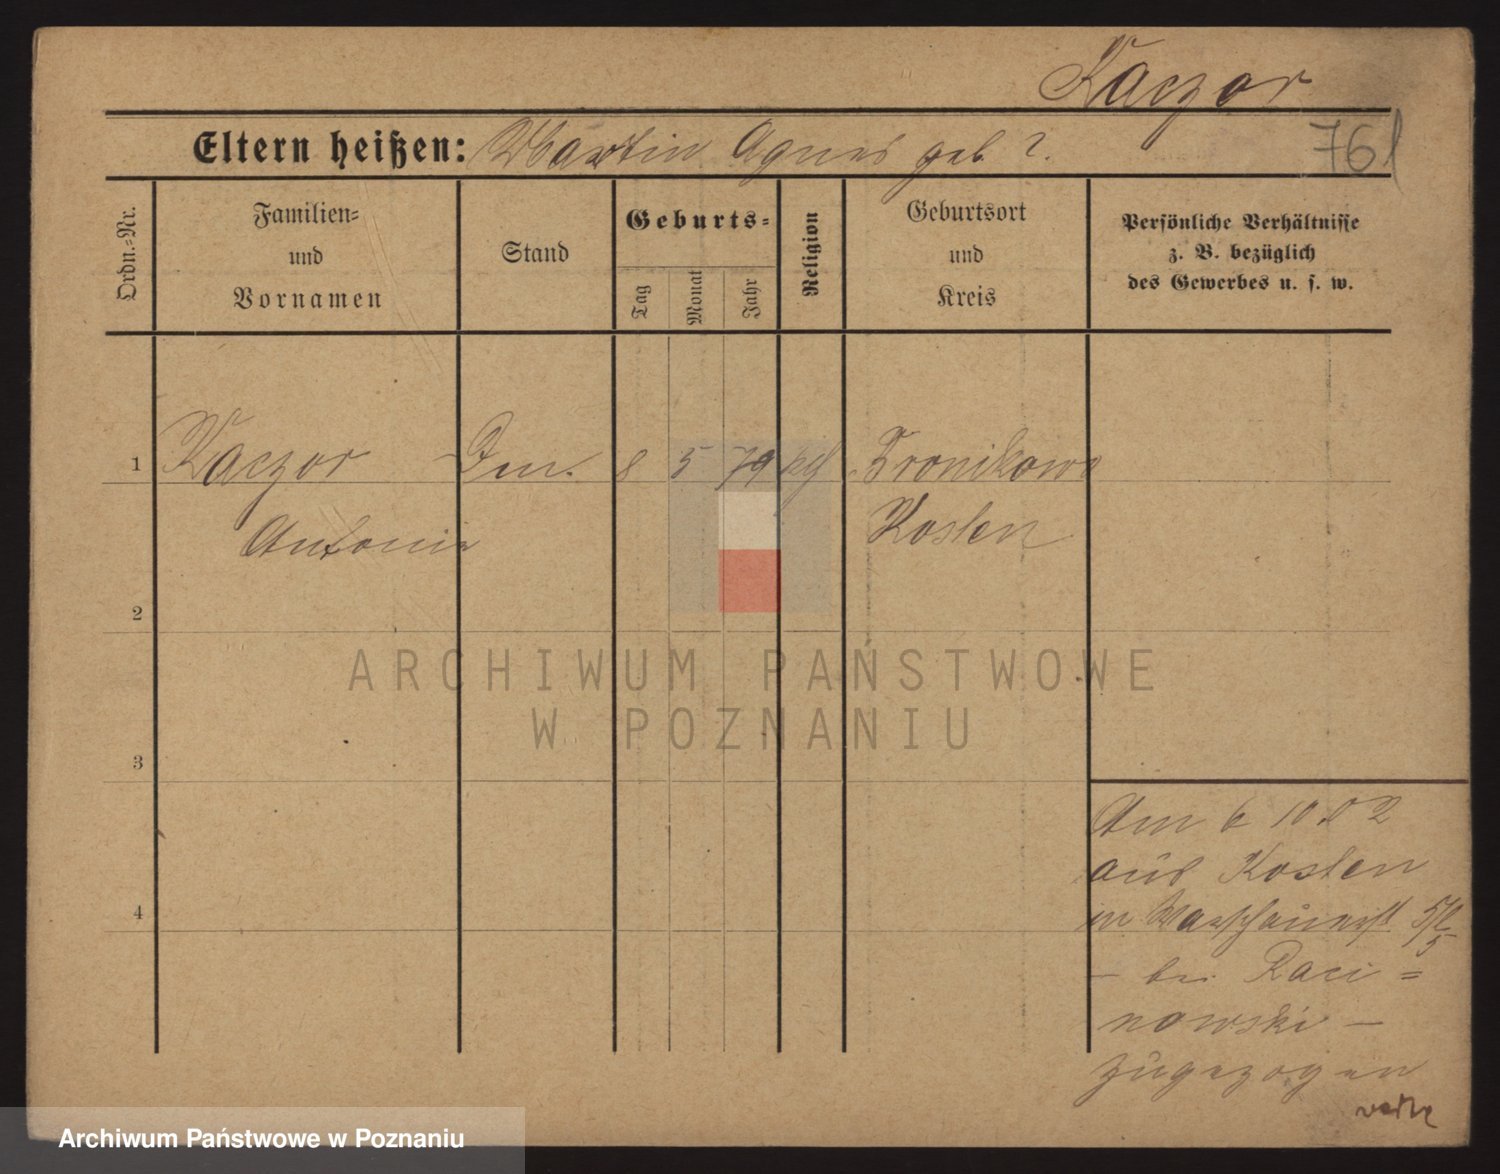 Kaczor
Eltern heißen: Martin Agnes geb ?.
761
Ordn.=Nr.
Familien=
und
Vornamen
Stand
Geburts=
Tag
Monat
Jahr
Religion
Geburtsort
und
Kreis
Persönliche Verhältnisse
z. B. bezüglich
des Gewerbes u. s. w.
1 Kaczor 8 5 79 Bronikowo
Antonie Kosten
2
3
4
Am 6 10.02
aus Kosten
n. Warschauerst 5/6
5
– bei Raci=
nowski –
zugezogen
ARCHIWUM PAŃSTWOWE
W POZNANIU
Archiwum Państwowe w Poznaniu